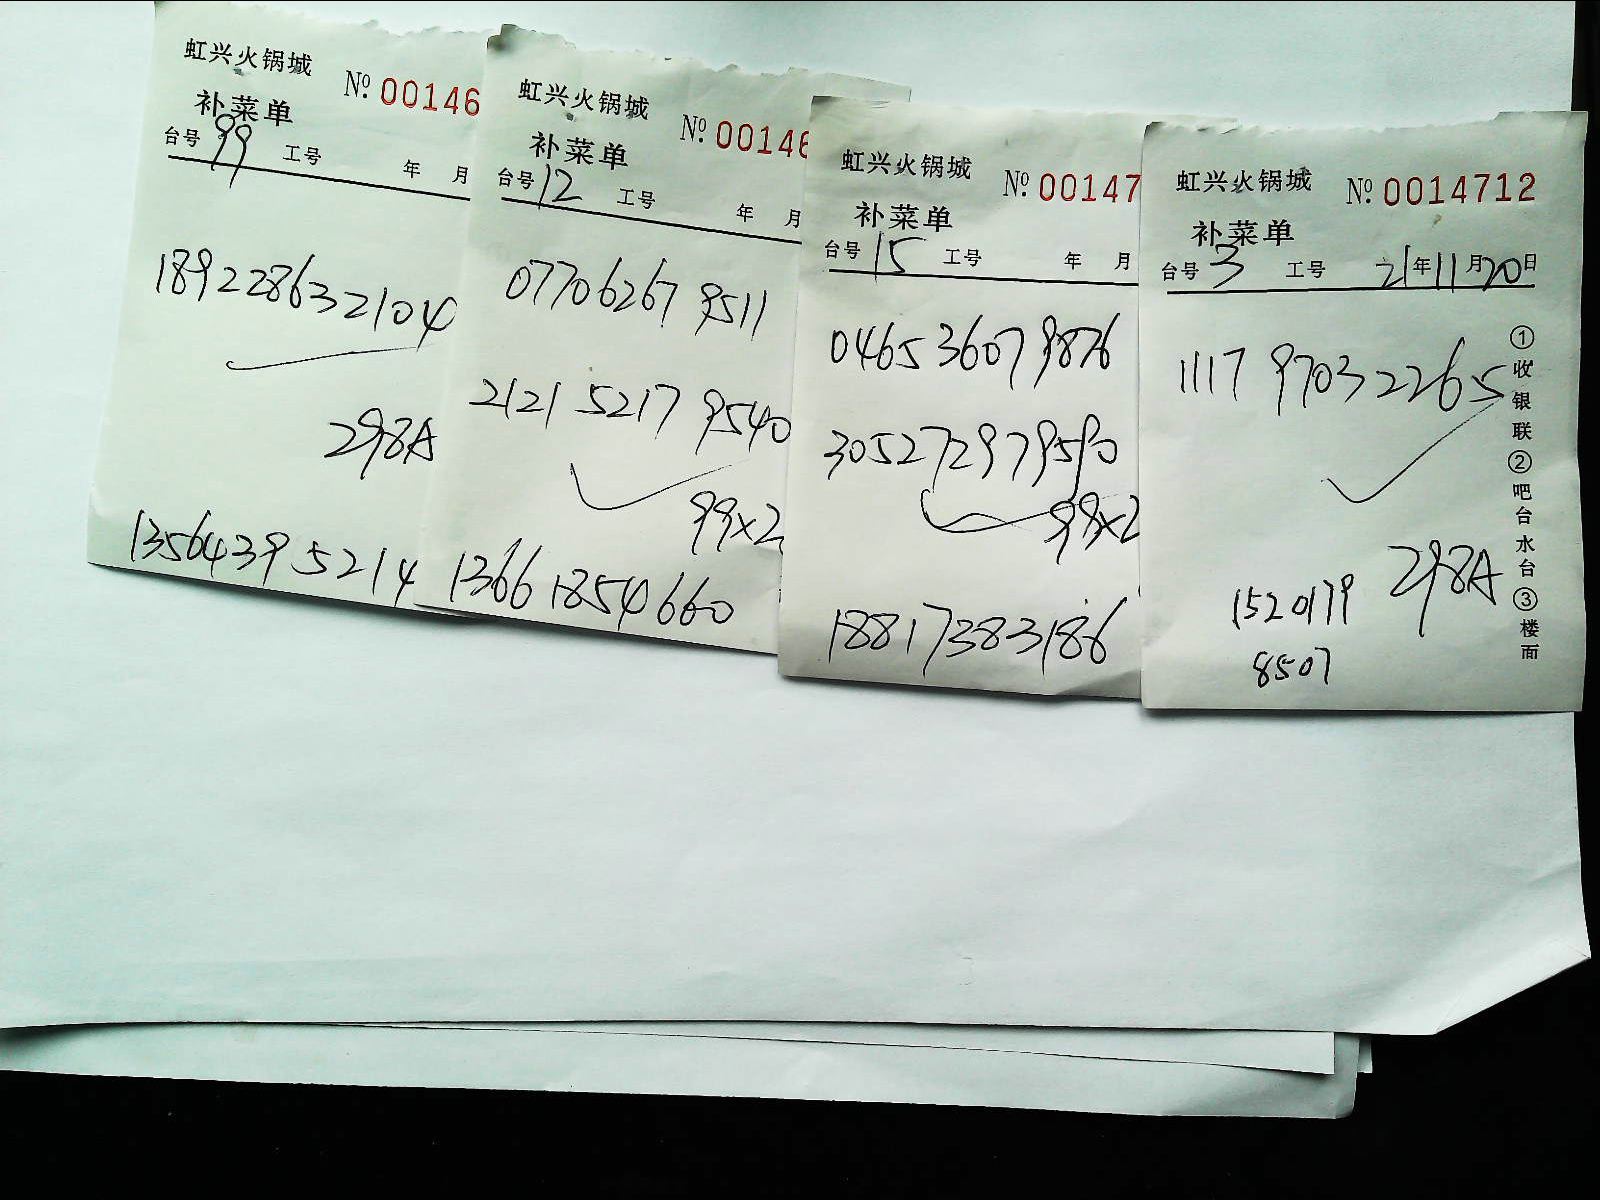 虹兴火锅城 № 00146
补菜单
台号 99 工号 年 月
189228632104
298A
13564395214
虹兴火锅城 № 00146
补菜单
台号 12 工号 年 月
07706267 9511
2121 5217 9540
99x2
13661854660
虹兴火锅城 № 00147
补菜单
台号 15 工号 年 月
0465 3607 9876
3052 7297 9590
99x2
18817383186
虹兴火锅城 № 0014712
补菜单
台号 3 工号 21年11月20日
1117 9703 2265
298A
1520179
8507
①收银联②吧台水台③楼面